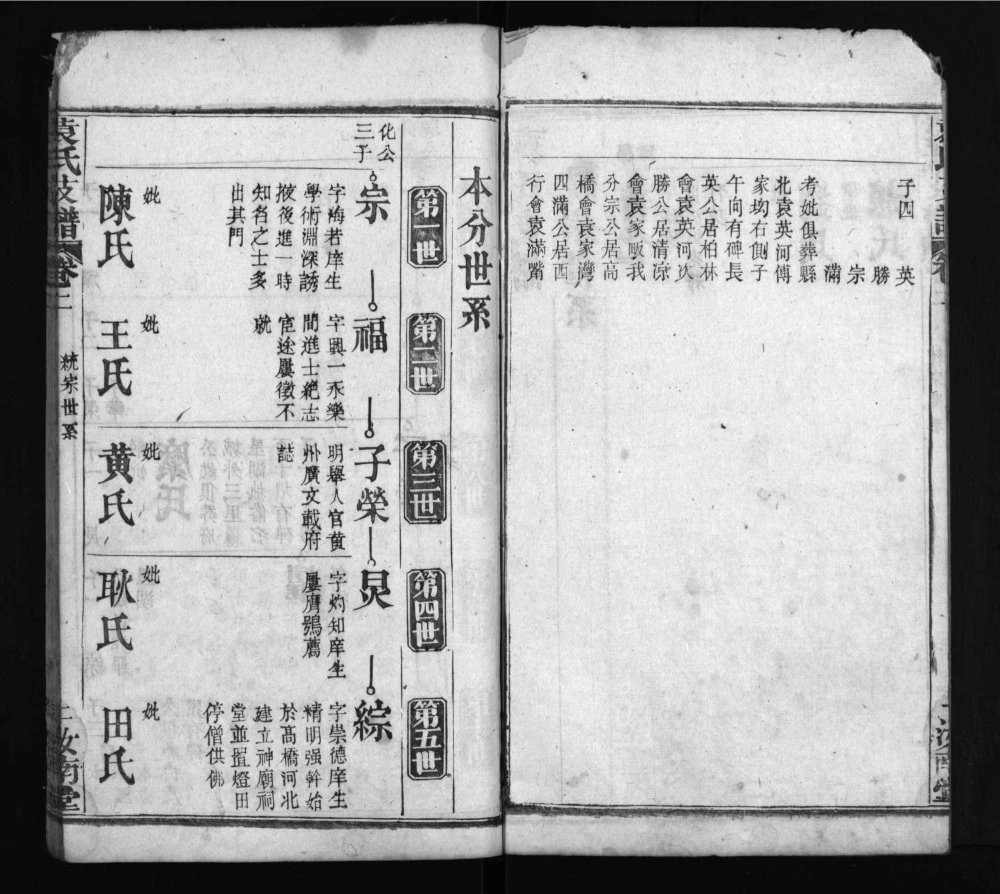 子四 英
勝
宗
滿
考妣俱葬縣
北袁英河傅
家坳右側子
午向有碑長
英公居柏林
會袁英河次
勝公居清凉
會袁家畈我
分宗公居高
橋會袁家灣
四滿公居西
行會袁滿觜
本分世系
第一世
第二世
第三世
第四世
第五世
化公
三子
宗
字海若庠生
學術淵深誘
掖後進一時
知名之士多
出其門
妣
陳氏
福
字興一永樂
間進士絶志
宦途屢徵不
就
妣
王氏
子榮
明舉人官黄
州廣文載府
誌
妣
黄氏
炅
字灼知庠生
屢膺鶚薦
妣
耿氏
綜
字崇德庠生
精明强幹始
於高橋河北
建立神廟祠
堂並置燈田
停僧供佛
妣
田氏
袁氏支譜
卷二
統宗世系
二
汝南堂